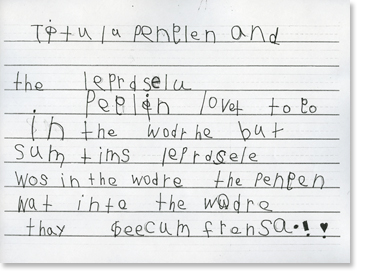 Titula penplen and
the leprdselu
Peplin lovet to go
in the wodrhe but
sum tims leprdsele
wos in the wodre the penpen
wat inte the wadre
thay beecum frensa.!♥